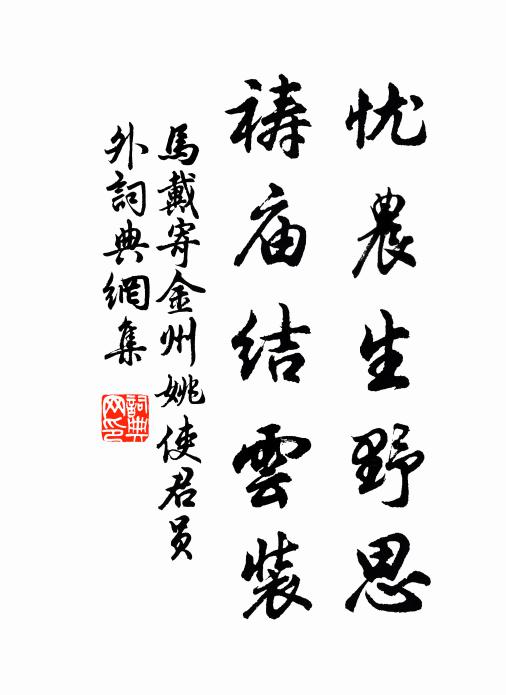 忧農生野思
祷庙结雲装
馬戴寄金州姚使君员
外詞典網集
詞典网印